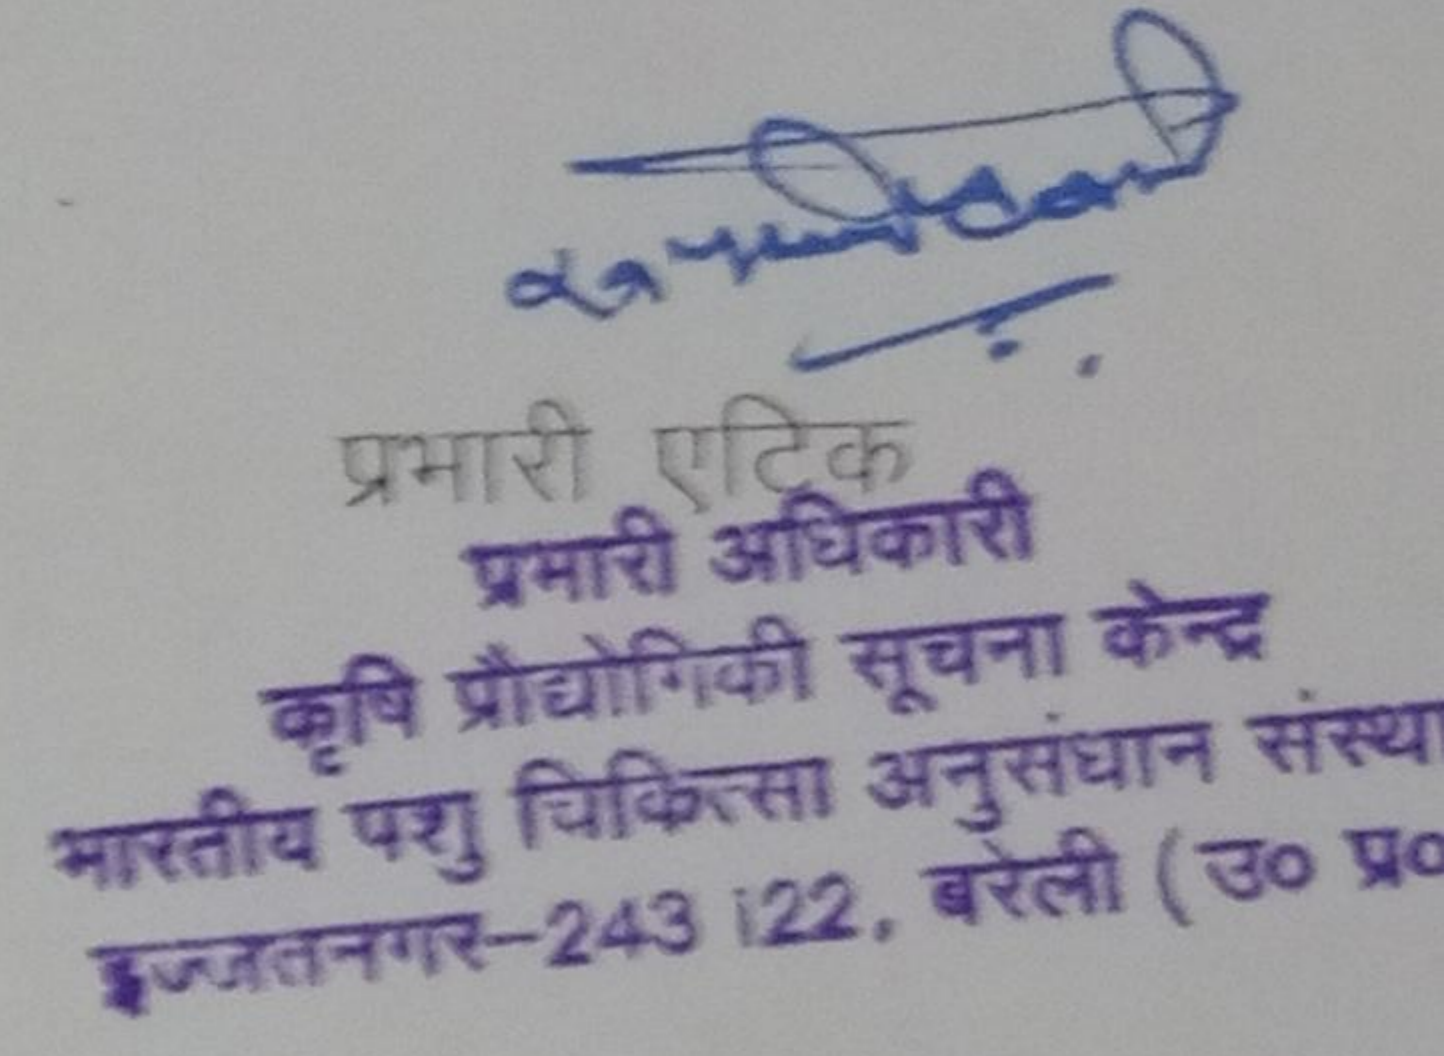 प्रभारी एटिक
प्रभारी अधिकारी
कृषि प्रौद्योगिकी सूचना केन्द्र
भारतीय पशु चिकित्सा अनुसंधान संस्था
इज्जतनगर–243 122, बरेली (उ० प्र०